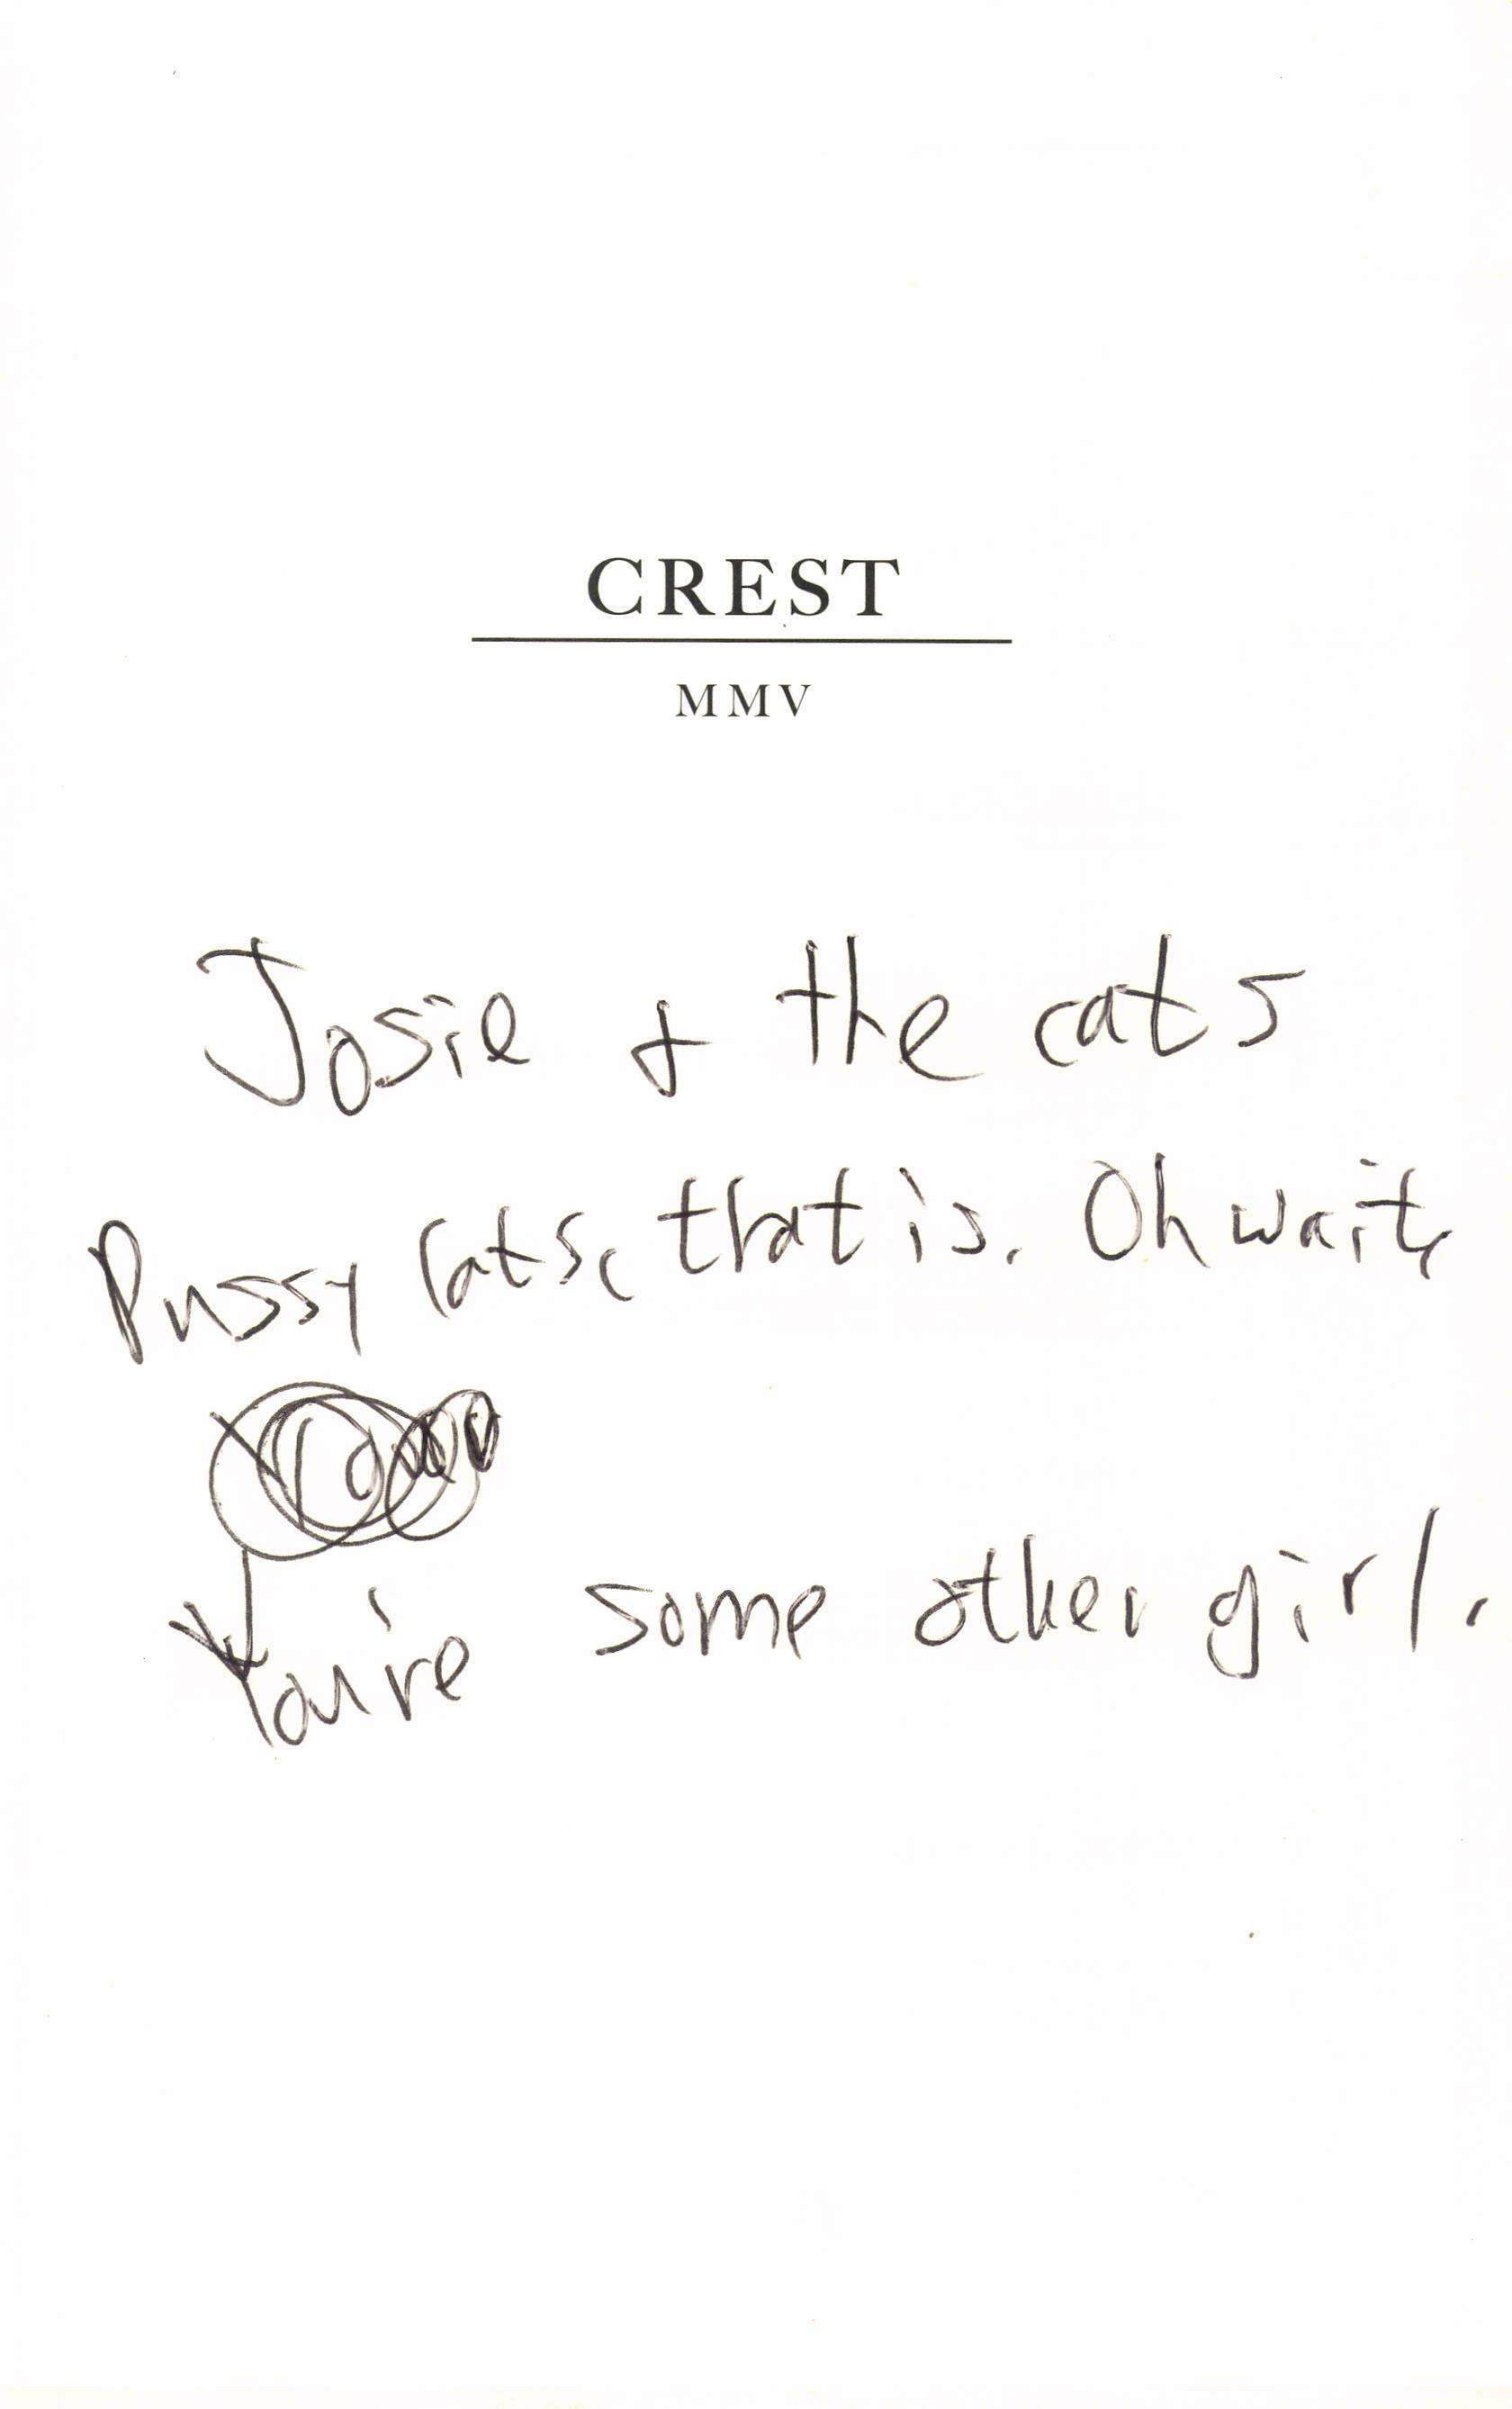 CREST
MMV
Josie & the cats
Pussy Cats, that is. Oh wait,
You're some other girl.